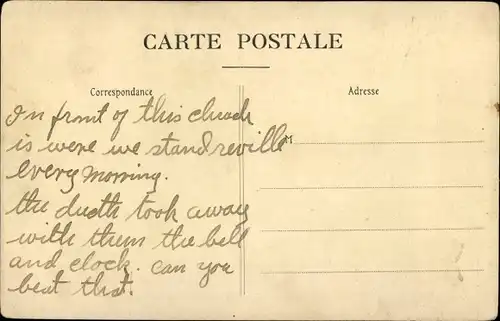 CARTE POSTALE
Correspondance
Adresse
M
In front of this church
is were we stand reville
every morning.
the dutch took away
with them the bell
and clock. can you
beat that.